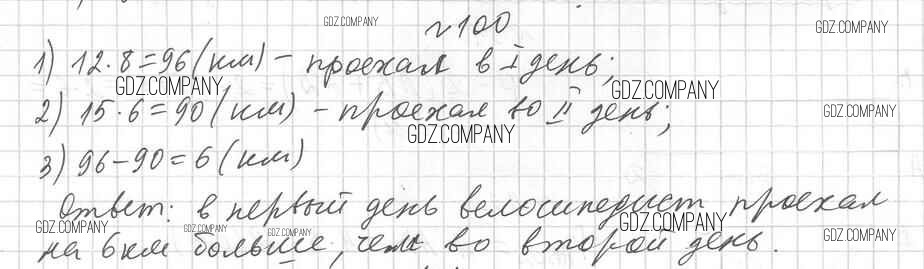 GDZ.COMPANY
№ 100
GDZ.COMPANY
1) 12·8=96 (км) – проехал в I день;
GDZ.COMPANY GDZ.COMPANY
2) 15·6=90 (км) – проехал во II день;
GDZ.COMPANY
GDZ.COMPANY
3) 96–90=6 (км)
Ответ: в первый день велосипедист проехал
GDZ.COMPANY GDZ.COMPANY GDZ.COMPANY GDZ.COMPANY GDZ.COMPANY
на 6 км больше, чем во второй день.